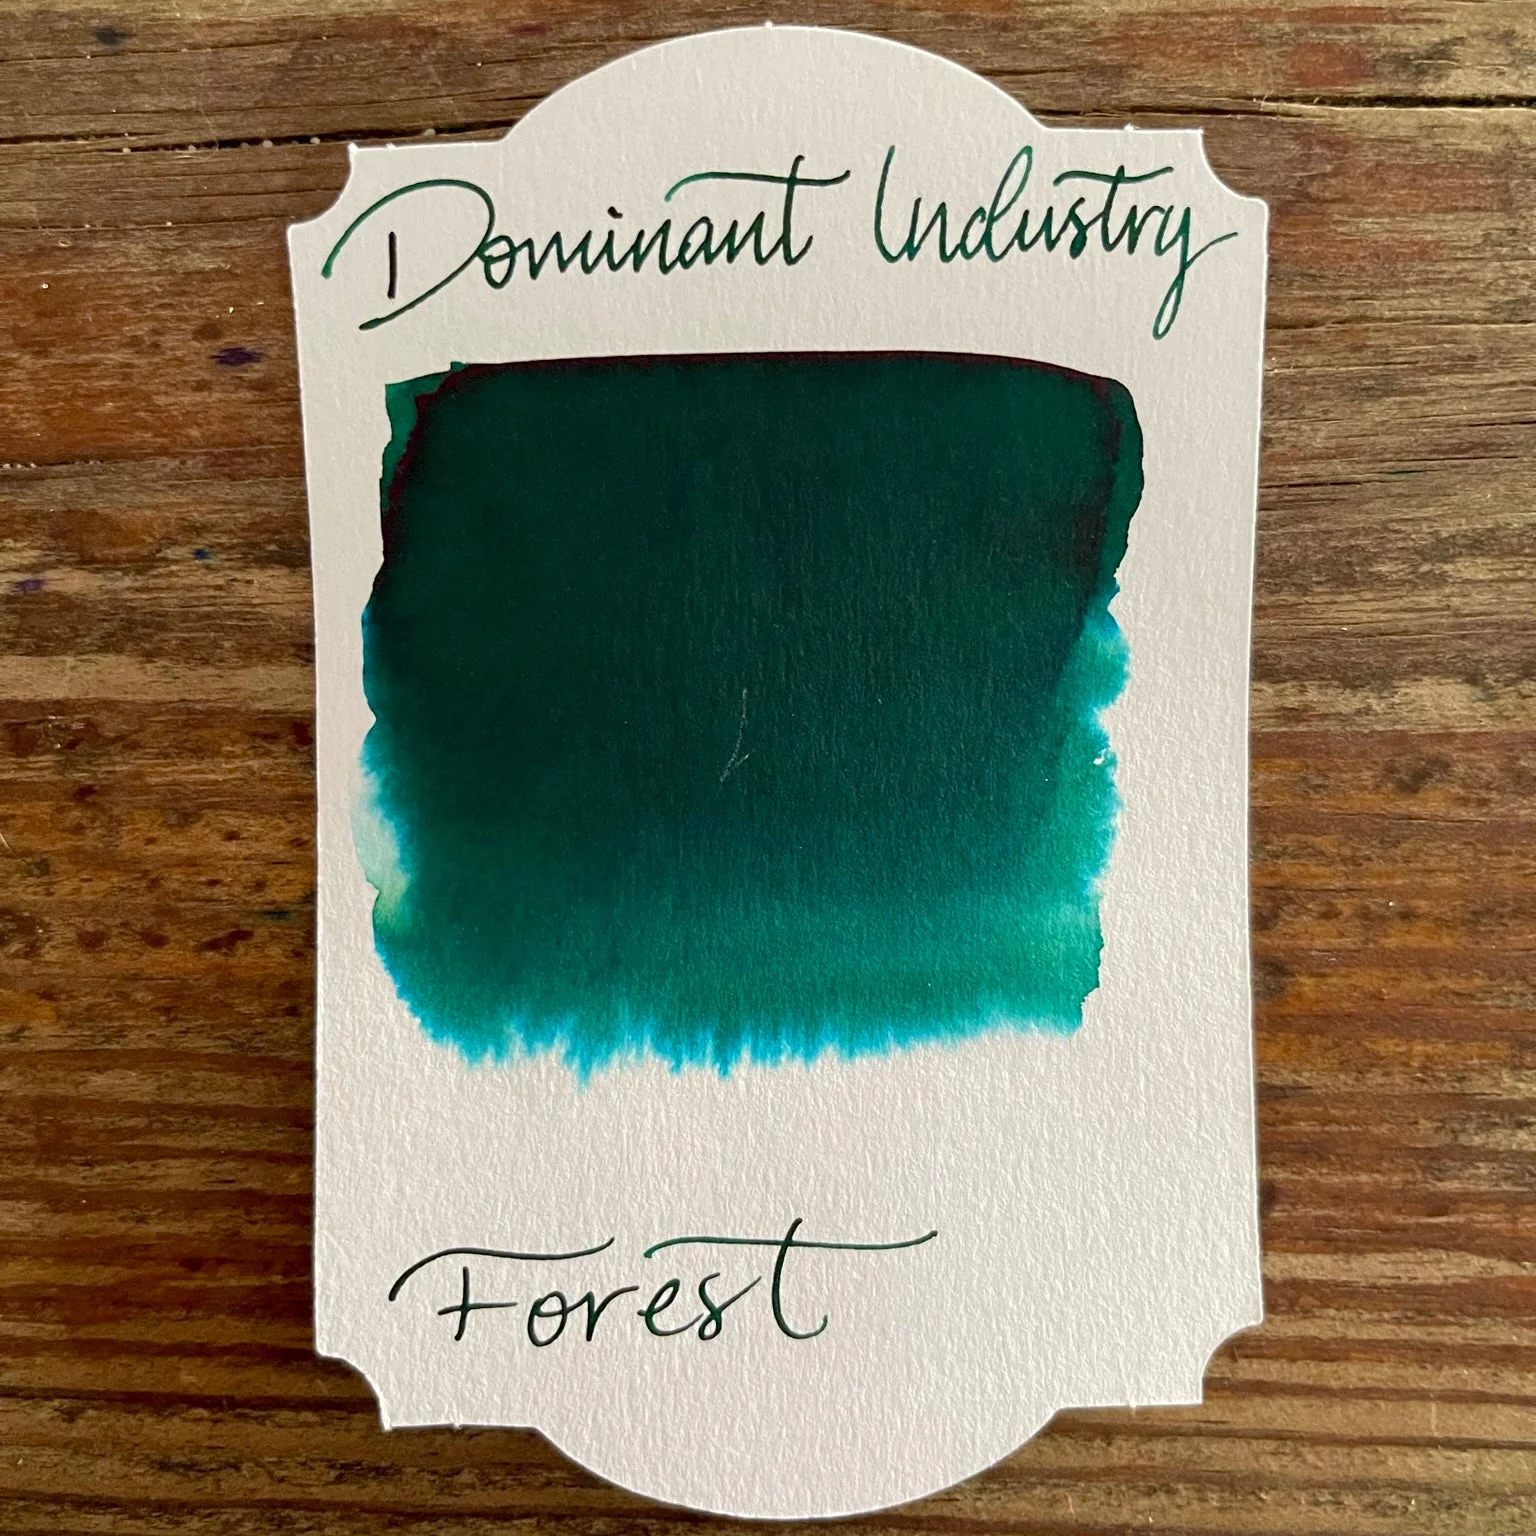 Dominant Industry
Forest